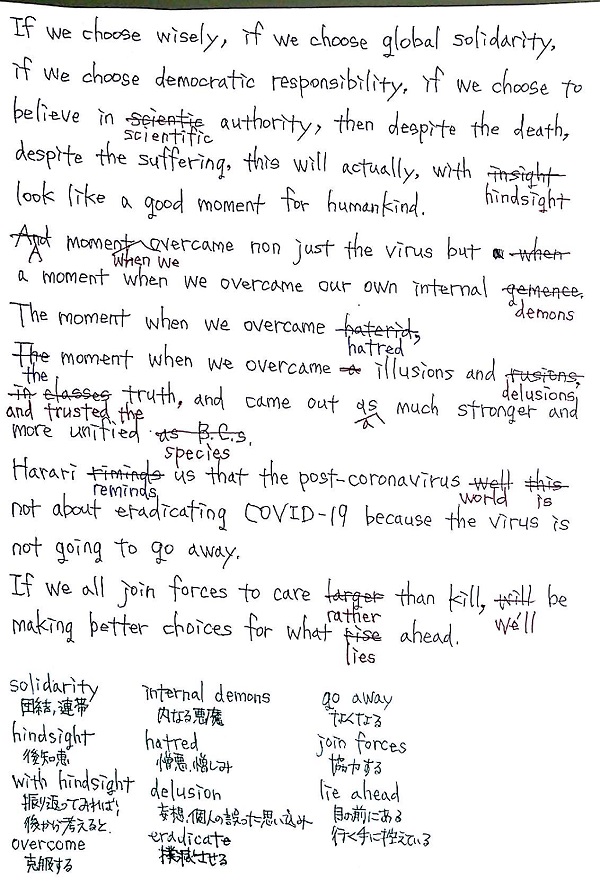 If we choose wisely, if we choose global solidarity,
if we choose democratic responsibility, if we choose to
believe in scientic authority, then despite the death,
scientific
despite the suffering, this will actually, with insight
hindsight
look like a good moment for humankind.
And moment overcame non just the virus but a when
A when we
a moment when we overcame our own internal gemence.
demons
The moment when we overcame haterid,
hatred
The moment when we overcame a illusions and fusions,
the delusions
in classes truth, and came out as much stronger and
and trusted the a
more unified as B.C.s.
species
Harari riminds us that the post-coronavirus well this
reminds world is
not about eradicating COVID-19 because the virus is
not going to go away.
If we all join forces to care larger than kill, will be
rather we'll
making better choices for what rise ahead.
lies
solidarity internal demons go away
団結,連帯 内なる悪魔 なくなる
hindsight hatred join forces
後知恵 憎悪,憎しみ 協力する
with hindsight delusion lie ahead
振り返ってみれば, 妄想,個人の誤った思い込み 目の前にある
後から考えると, eradicate 行く手に控えている
overcome 撲滅させる
克服する